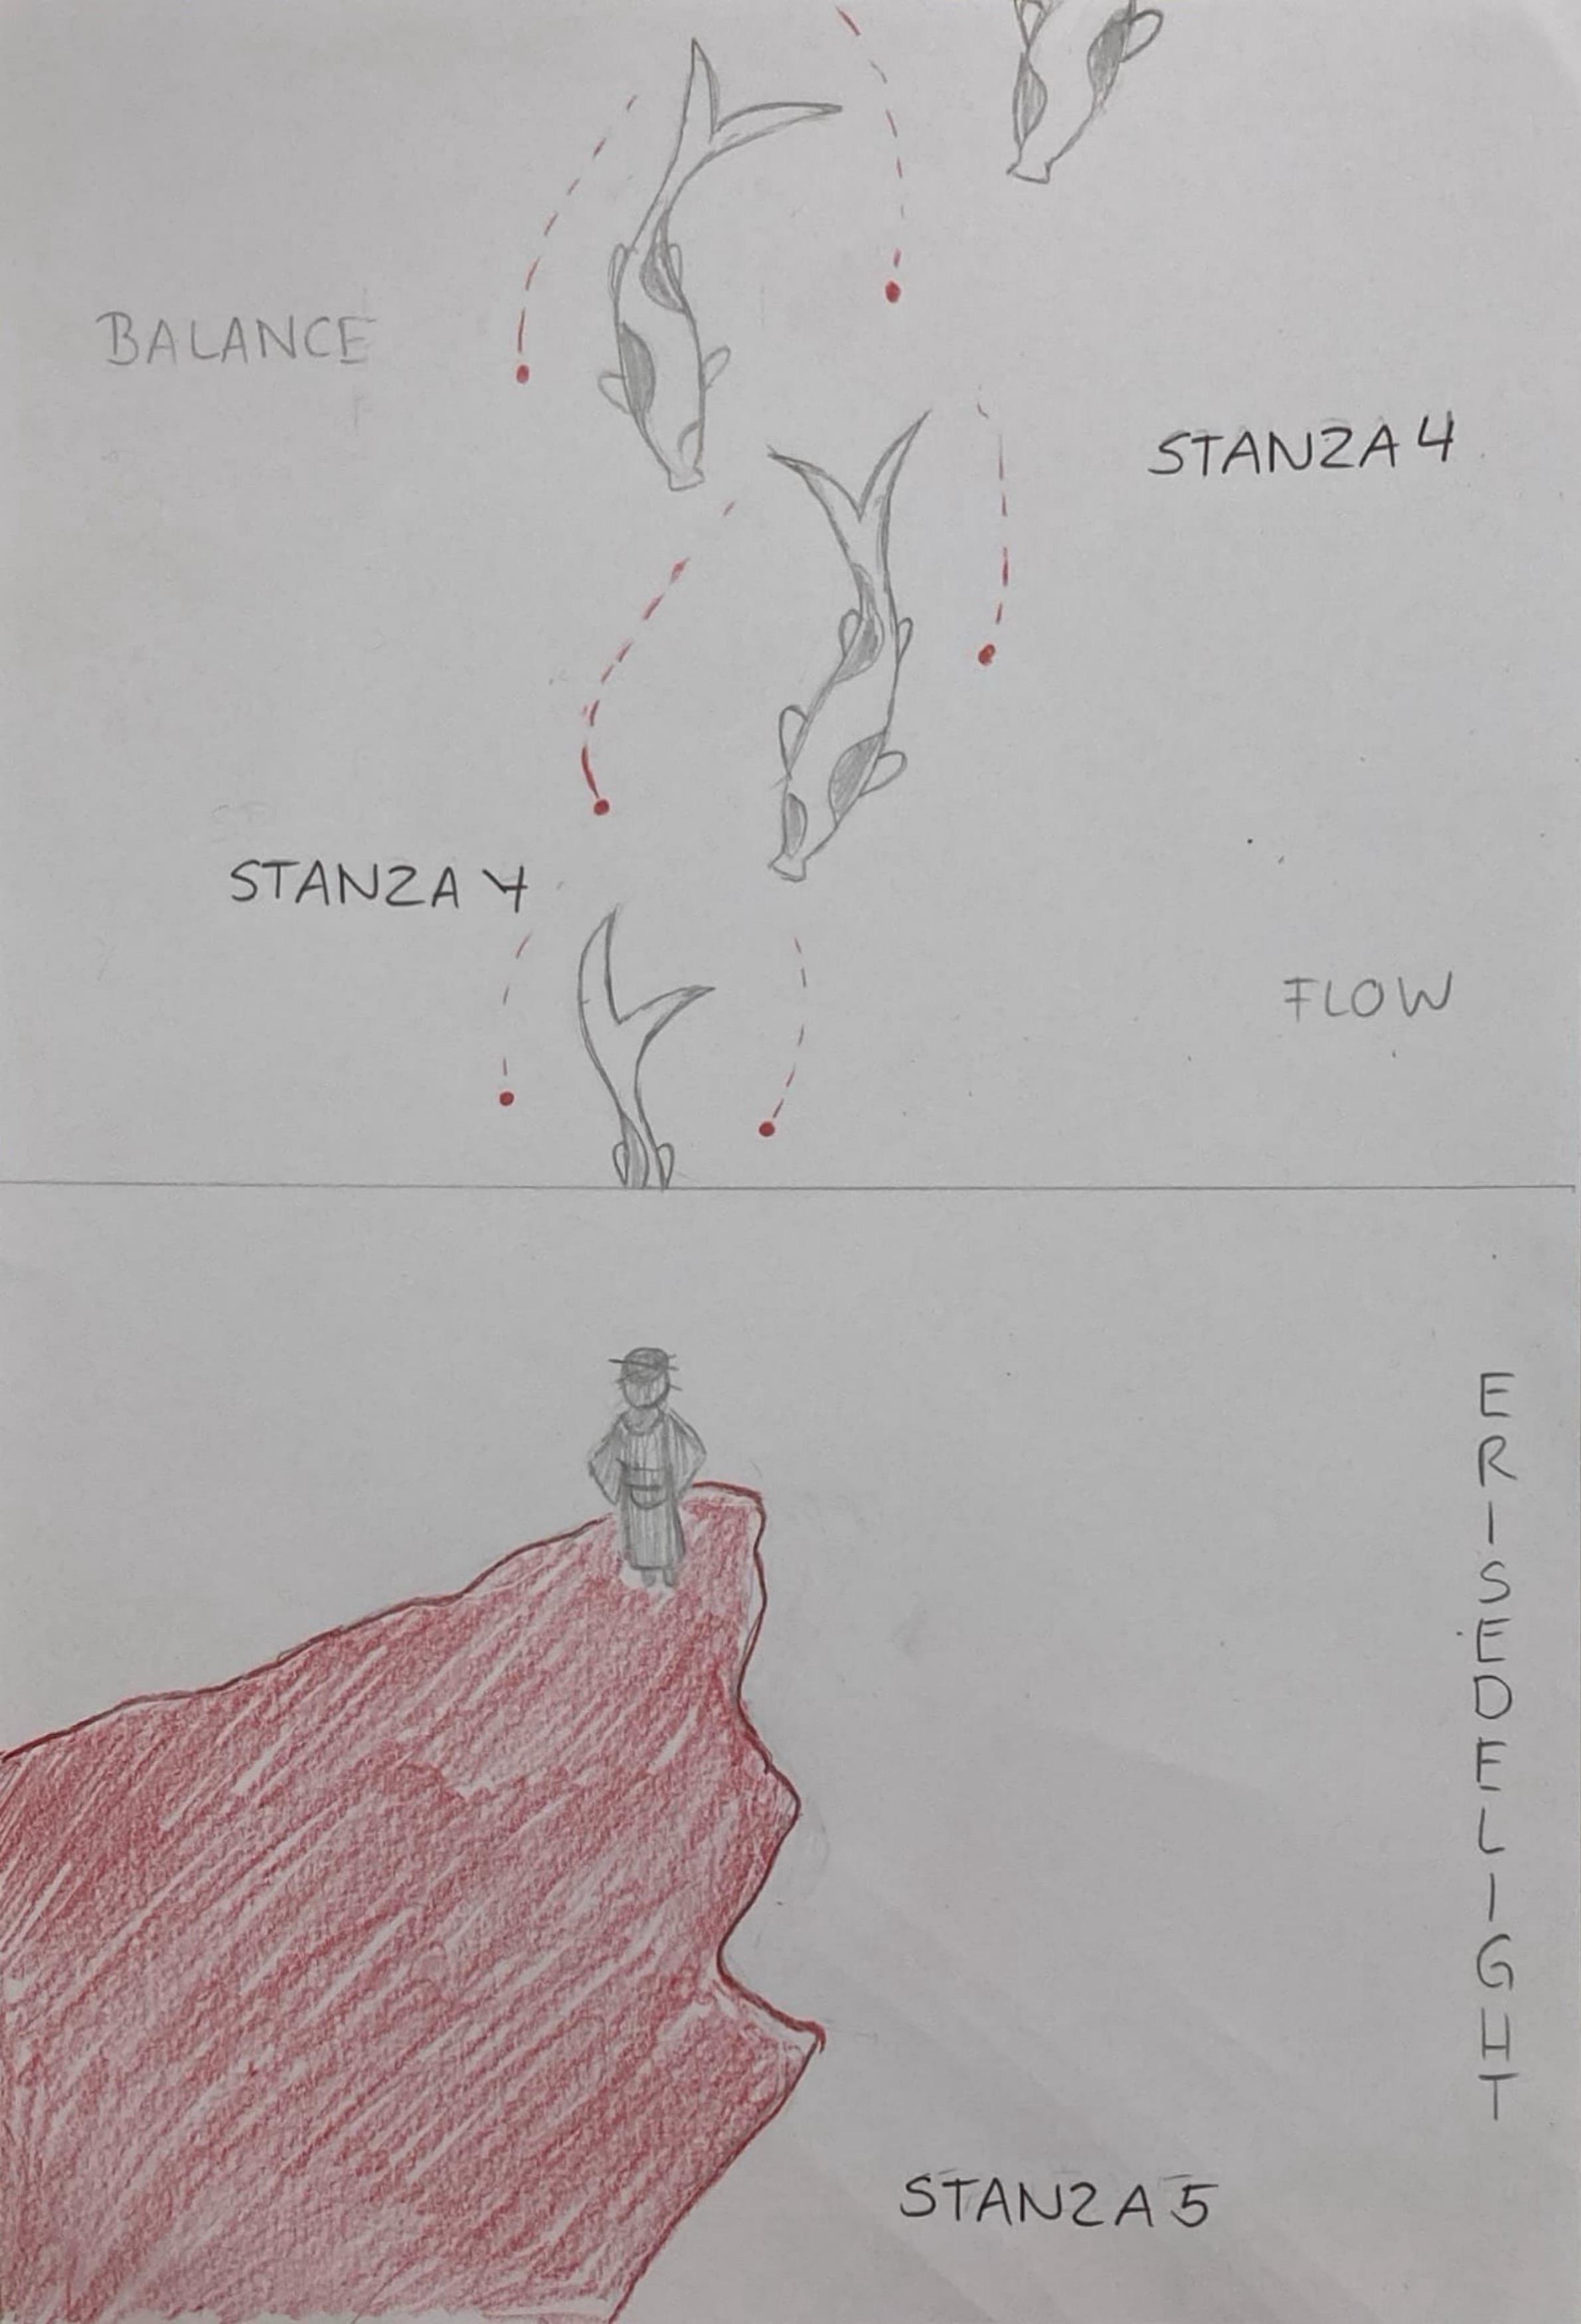 BALANCE
STANZA 4
STANZA 4
FLOW
E
R
I
S
E
D
E
L
I
G
H
T
STANZA 5